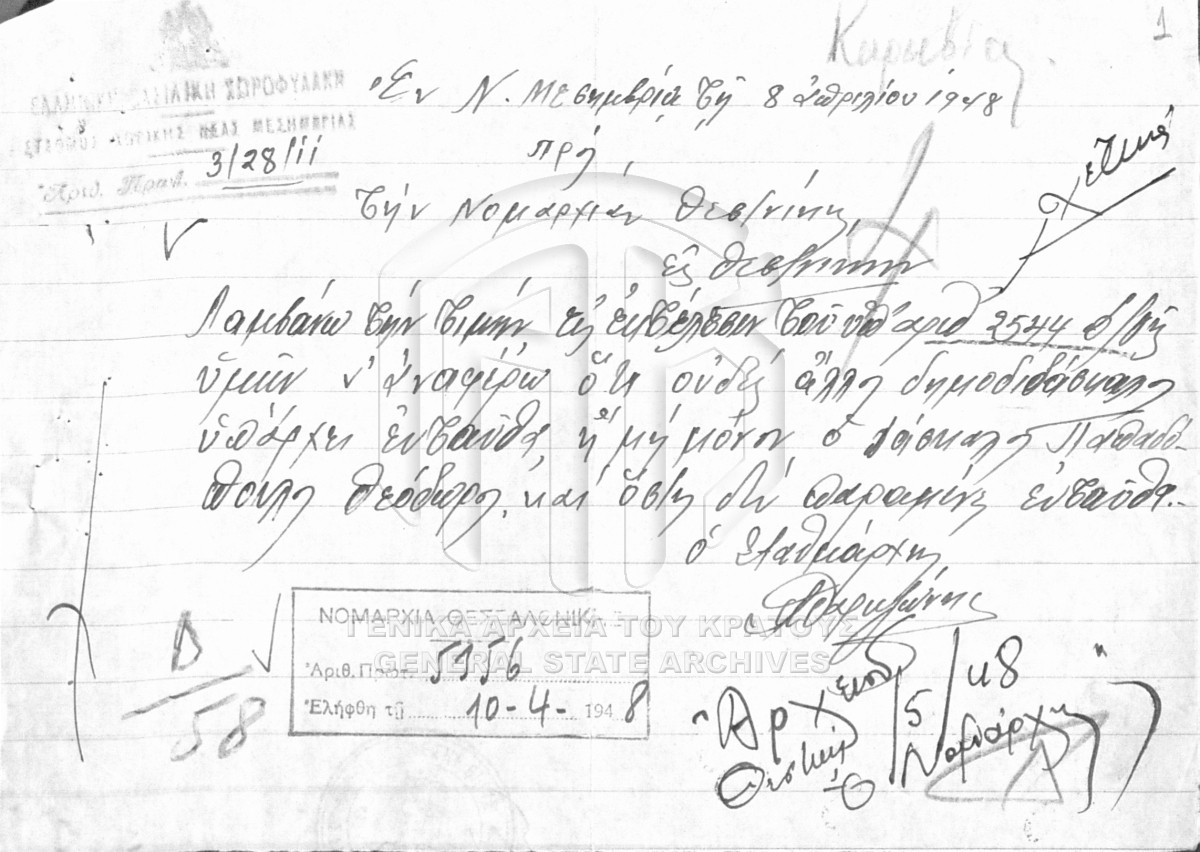 Καρυωβία
1
ΕΛΛΗΝΙΚΗ ΒΑΣΙΛΙΚΗ ΧΩΡΟΦΥΛΑΚΗ
ΣΤΑΘΜΟΣ ΧΩΡ/ΚΗΣ ΝΕΑΣ ΜΕΣΗΜΒΡΙΑΣ
Ἀριθ. Πρωτ. 3/28/11
Ἐν Ν. Μεσημβρίᾳ τῇ 8 Ἀπριλίου 1948
Πρός
Τήν Νομαρχίαν Θεσ/νίκης
εἰς Θεσ/νίκην
Σχετικά
Λαμβάνω τήν τιμήν, εἰς ἐκτέλεσιν τοῦ ὑπ' ἀριθ 2544 δ/γῆς
ὑμῶν ν' ἀναφέρω ὅτι οὐδείς ἄλλος δημοδιδάσκαλος
ὑπάρχει ἐνταῦθα, ἤ μή μόνον ὁ δάσκαλος Παπαδό-
πουλος Θεόδωρος, καί ὅστις δέν παραμένει ἐνταῦθα.-
Ὁ Σταθμάρχης
ΝΟΜΑΡΧΙΑ ΘΕΣΣΑΛΟΝΙΚΗΣ
Ἀριθ. Πρωτ. 5956
Ἐλήφθη τῇ 10-4-1948
Δ
58
ΓΕΝΙΚΑ ΑΡΧΕΙΑ ΤΟΥ ΚΡΑΤΟΥΣ
GENERAL STATE ARCHIVES
Ἀρχεῖον
Θεσ/νίκη 5/48
Ὁ Νομάρχης